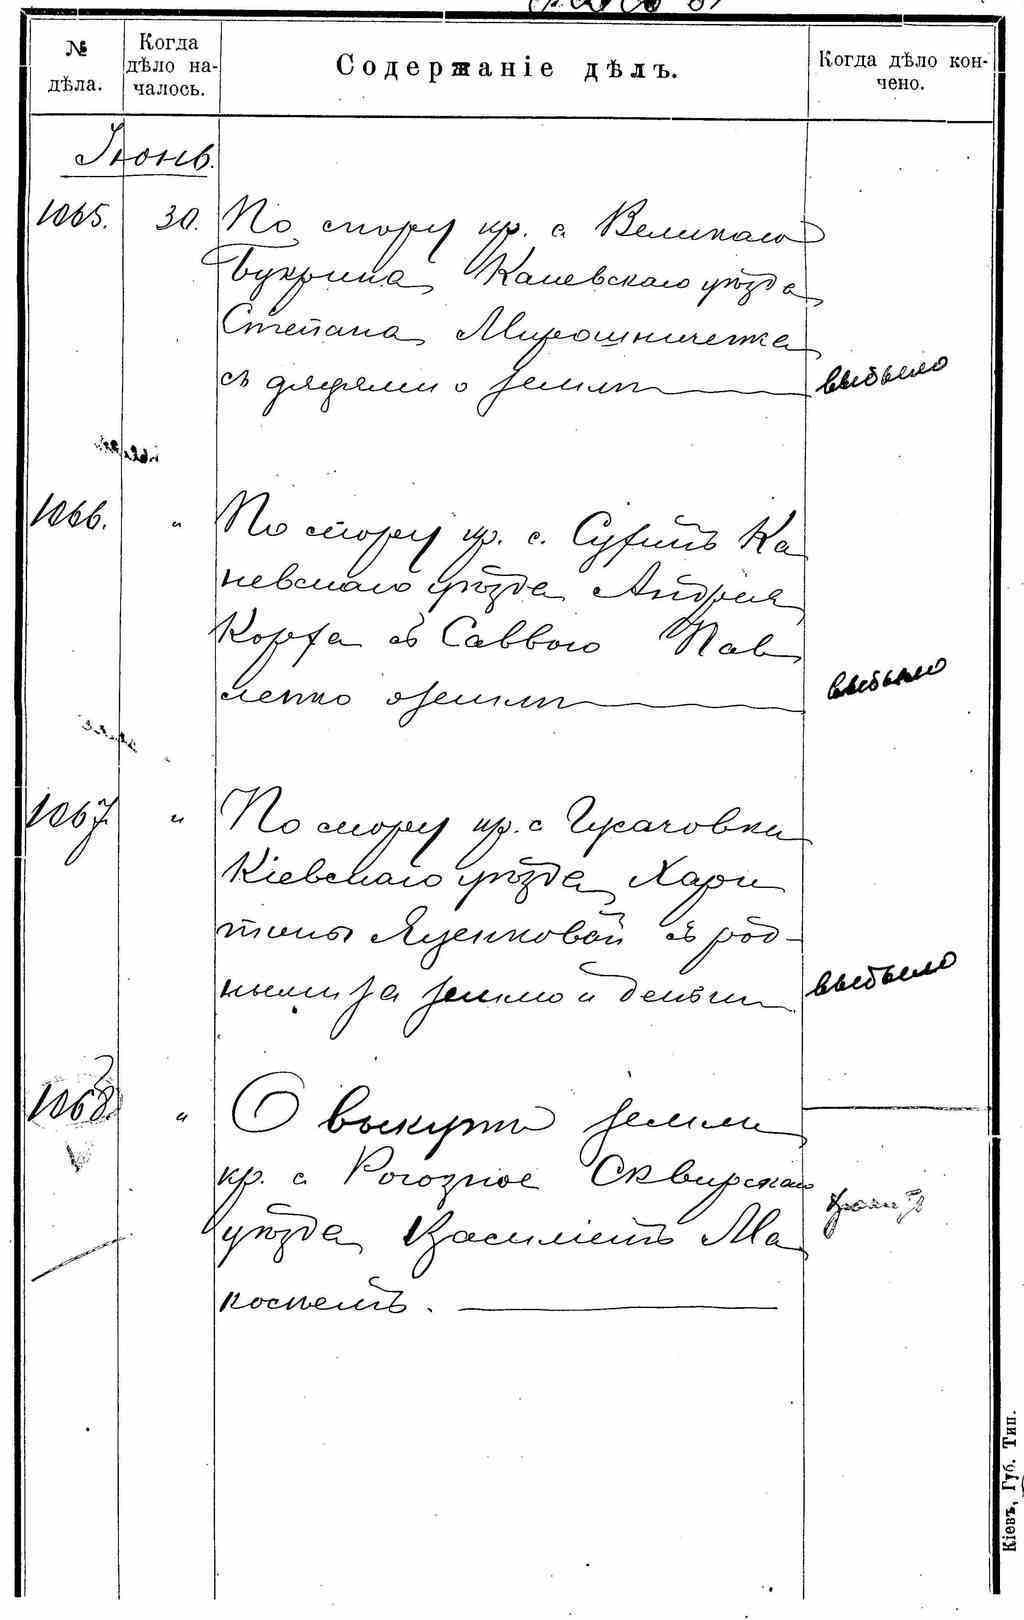 № дѣла.
Когда дѣло на-
чалось.
Содержаніе дѣлъ.
Когда дѣло кон-
чено.
Іюнь.
1065. 30. По спору кр. с Великаго
Букрина Каневскаго уѣзда
Степана Мирошниченка
съ дядями о землѣ выбыло
1066. " По спору кр. с. Ка
невскаго уѣзда Андрея
Коржа съ Саввою Пав
ленко о землѣ выбыло
1067. " По спору кр. с
Кіевскаго уѣзда Хари
тины Яценковой съ род-
ными за землю и деньги выбыло
1068. " О выкупѣ земли
кр. с Рогозное Сквирскаго
уѣзда Василіемъ Ма
.
Кіевъ, Губ. Тип.